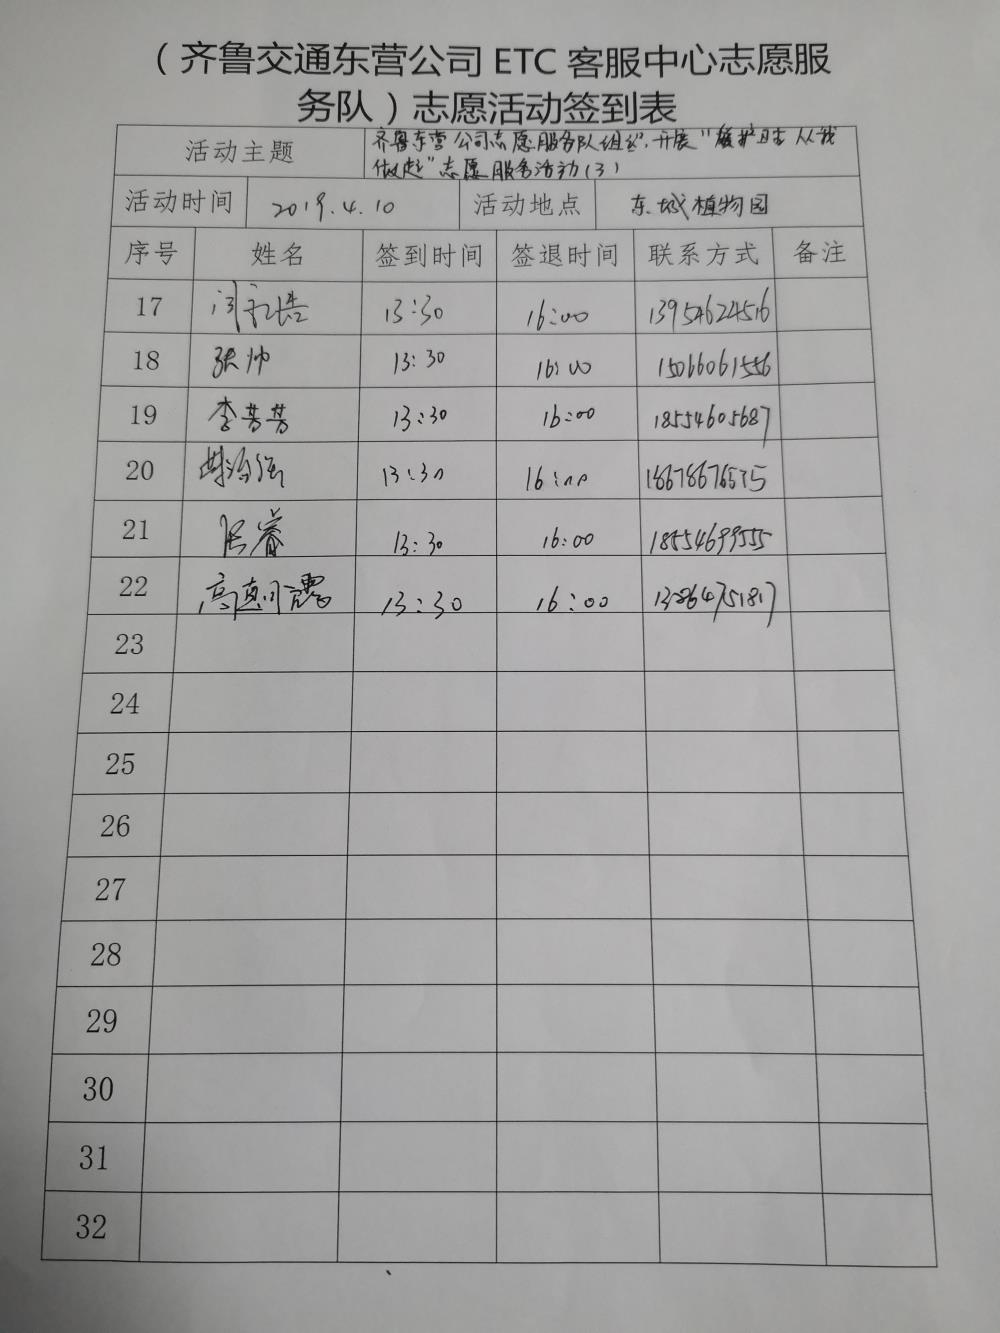 （齐鲁交通东营公司 ETC 客服中心志愿服
务队）志愿活动签到表
活动主题 齐鲁东营公司志愿服务队组织开展“维护卫生 从我
做起”志愿服务活动(3)
活动时间 2019.4.10 活动地点 东城植物园
序号 姓名 签到时间 签退时间 联系方式 备注
17 闫永浩 13:30 16:00 13954624516
18 张帅 13:30 16:00 15066061556
19 李芳芳 13:30 16:00 18554605687
20 13:30 16:00 18678676535
21 张睿 13:30 16:00 18554699555
22 高 13:30 16:00 13864751817
23
24
25
26
27
28
29
30
31
32